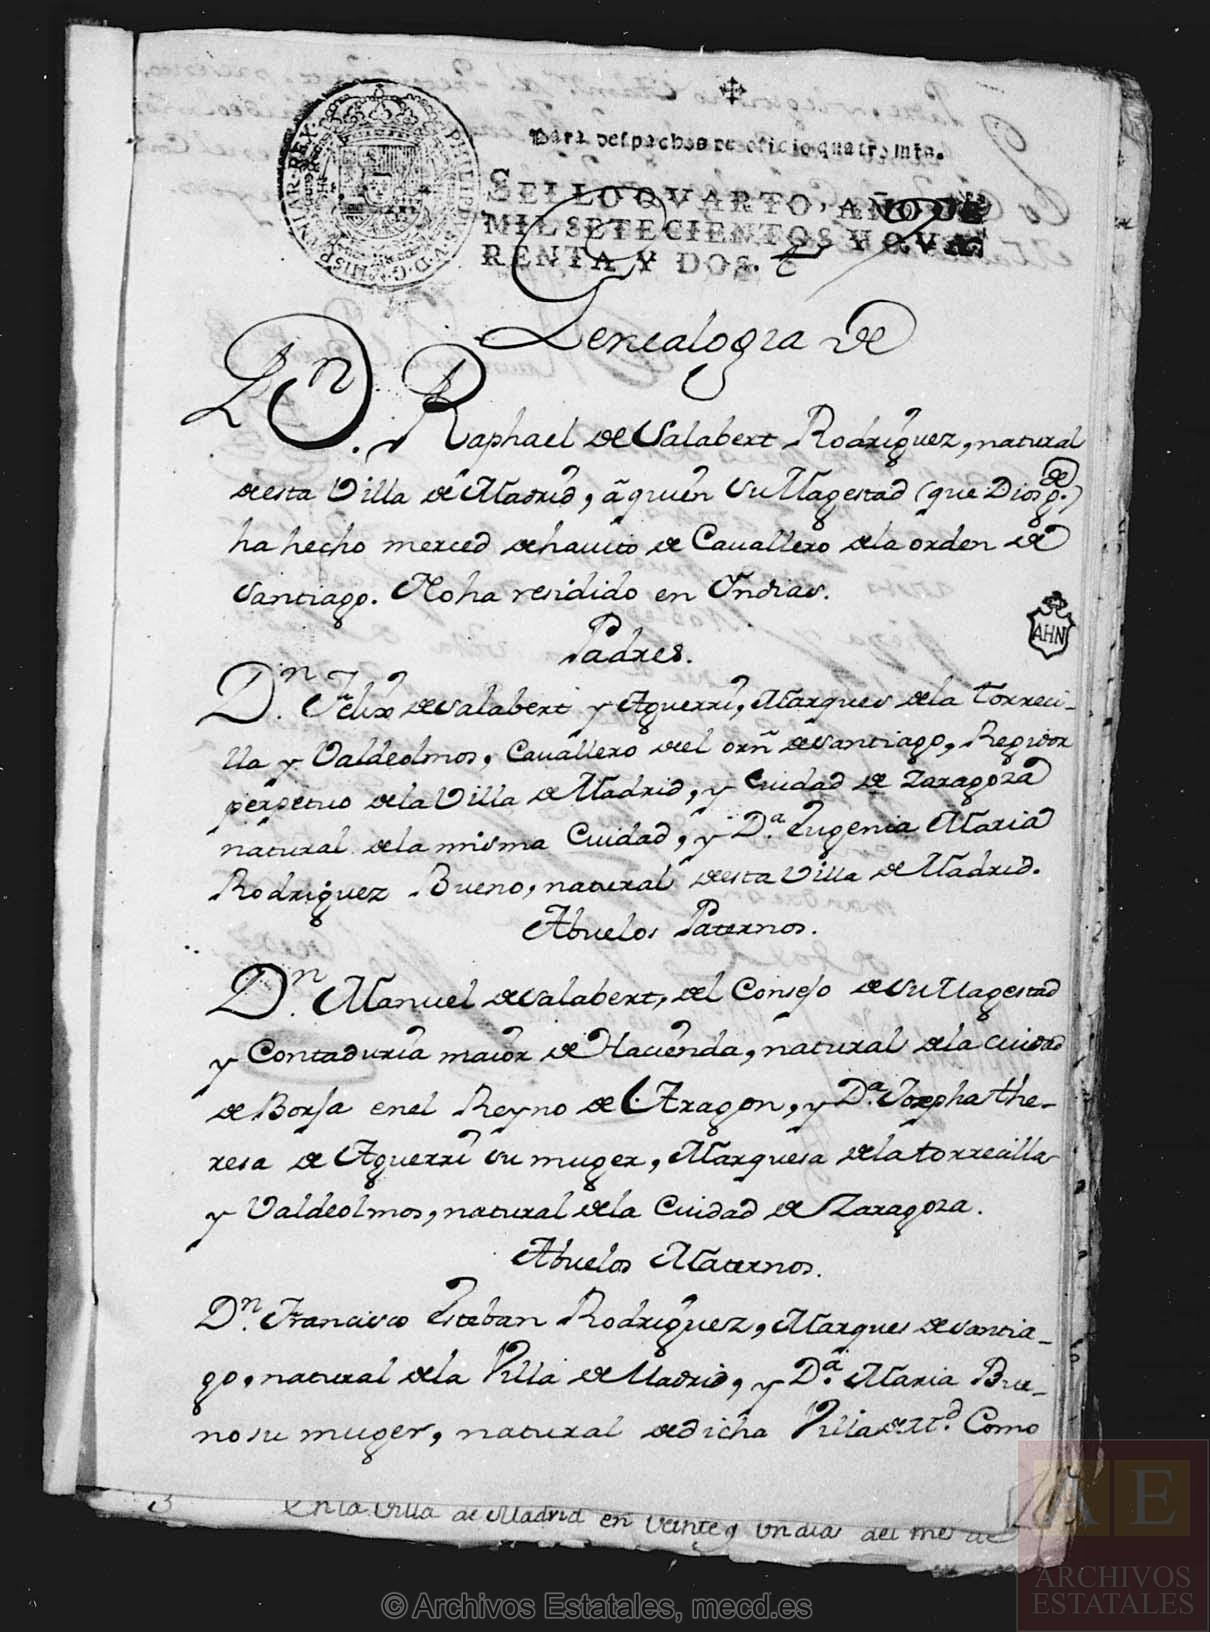 Para despachos de oficio quatro mrs.
SELLO QVARTO, AÑO DE
MIL SETECIENTOS Y QVA-
RENTA Y DOS.
PHILIPPUS V. D. G. HISPANIAR. REX
Genealogia de
Dn. Raphael de Salabert Rodriguez, natural
de esta Villa de Madrid, â quien Su Magestad (que Dios gde.)
ha hecho merced de havito de Cavallero de la orden de
Santiago. No ha residido en Indias.
Padres.
Dn. Felix de Salabert y Aguerri, Marques de la Torreci-
lla y Valdeolmos, Cavallero del orn de Santiago, Regidor
perpetuo de la Villa de Madrid, y Ciudad de Zaragoza
natural de la misma Ciudad, y Da. Eugenia Maria
Rodriguez Bueno, natural de esta Villa de Madrid.
Abuelos Paternos.
Dn. Manuel de Salabert, del Consejo de Su Magestad
y Contaduria maior de Hacienda, natural de la Ciudad
de Borja en el Reyno de Aragon, y Da. Josepha The-
resa de Aguerri su muger, Marquesa de la torrecilla
y Valdeolmos, natural de la Ciudad de Zaragoza.
Abuelos Maternos.
Dn. Francisco Esteban Rodriguez, Marques de Santia-
go, natural de la Villa de Madrid, y Da. Maria Bue-
no su muger, natural de dicha Villa de Md. Como
AHN
3 En la Villa de Madrid en veinte y un dias del mes de
AE
ARCHIVOS
ESTATALES
© Archivos Estatales, mecd.es